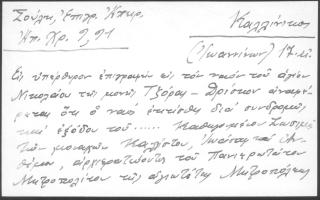 Σούλη, Ἐπιγρ. Ἠπειρ.
Ἠπ. Χρ. 9, 91
Καλλίνικος
(Ἰωαννίνων) 17 αἰ.
Εἰς ὑπέρθυρον ἐπιγραφὴ εἰς τὸν ναὸν τοῦ ἁγίου
Νικολάου τῆς μονῆς Τζόρας - Δρίστου ἀναφέ
ρεται ὅτι ὁ ναὸς ἐκτίσθη διὰ συνδρομῆς
καὶ ἐξόδου τοῦ ...... Καθηγουμένου
τῶν μοναχῶν Καλλίστου, καὶ Ἀν
θίμου, ἀρχιερατεύοντος τοῦ Πανιερωτάτου
Μητροπολίτου τῆς ἁγιωτάτης Μητροπόλεως